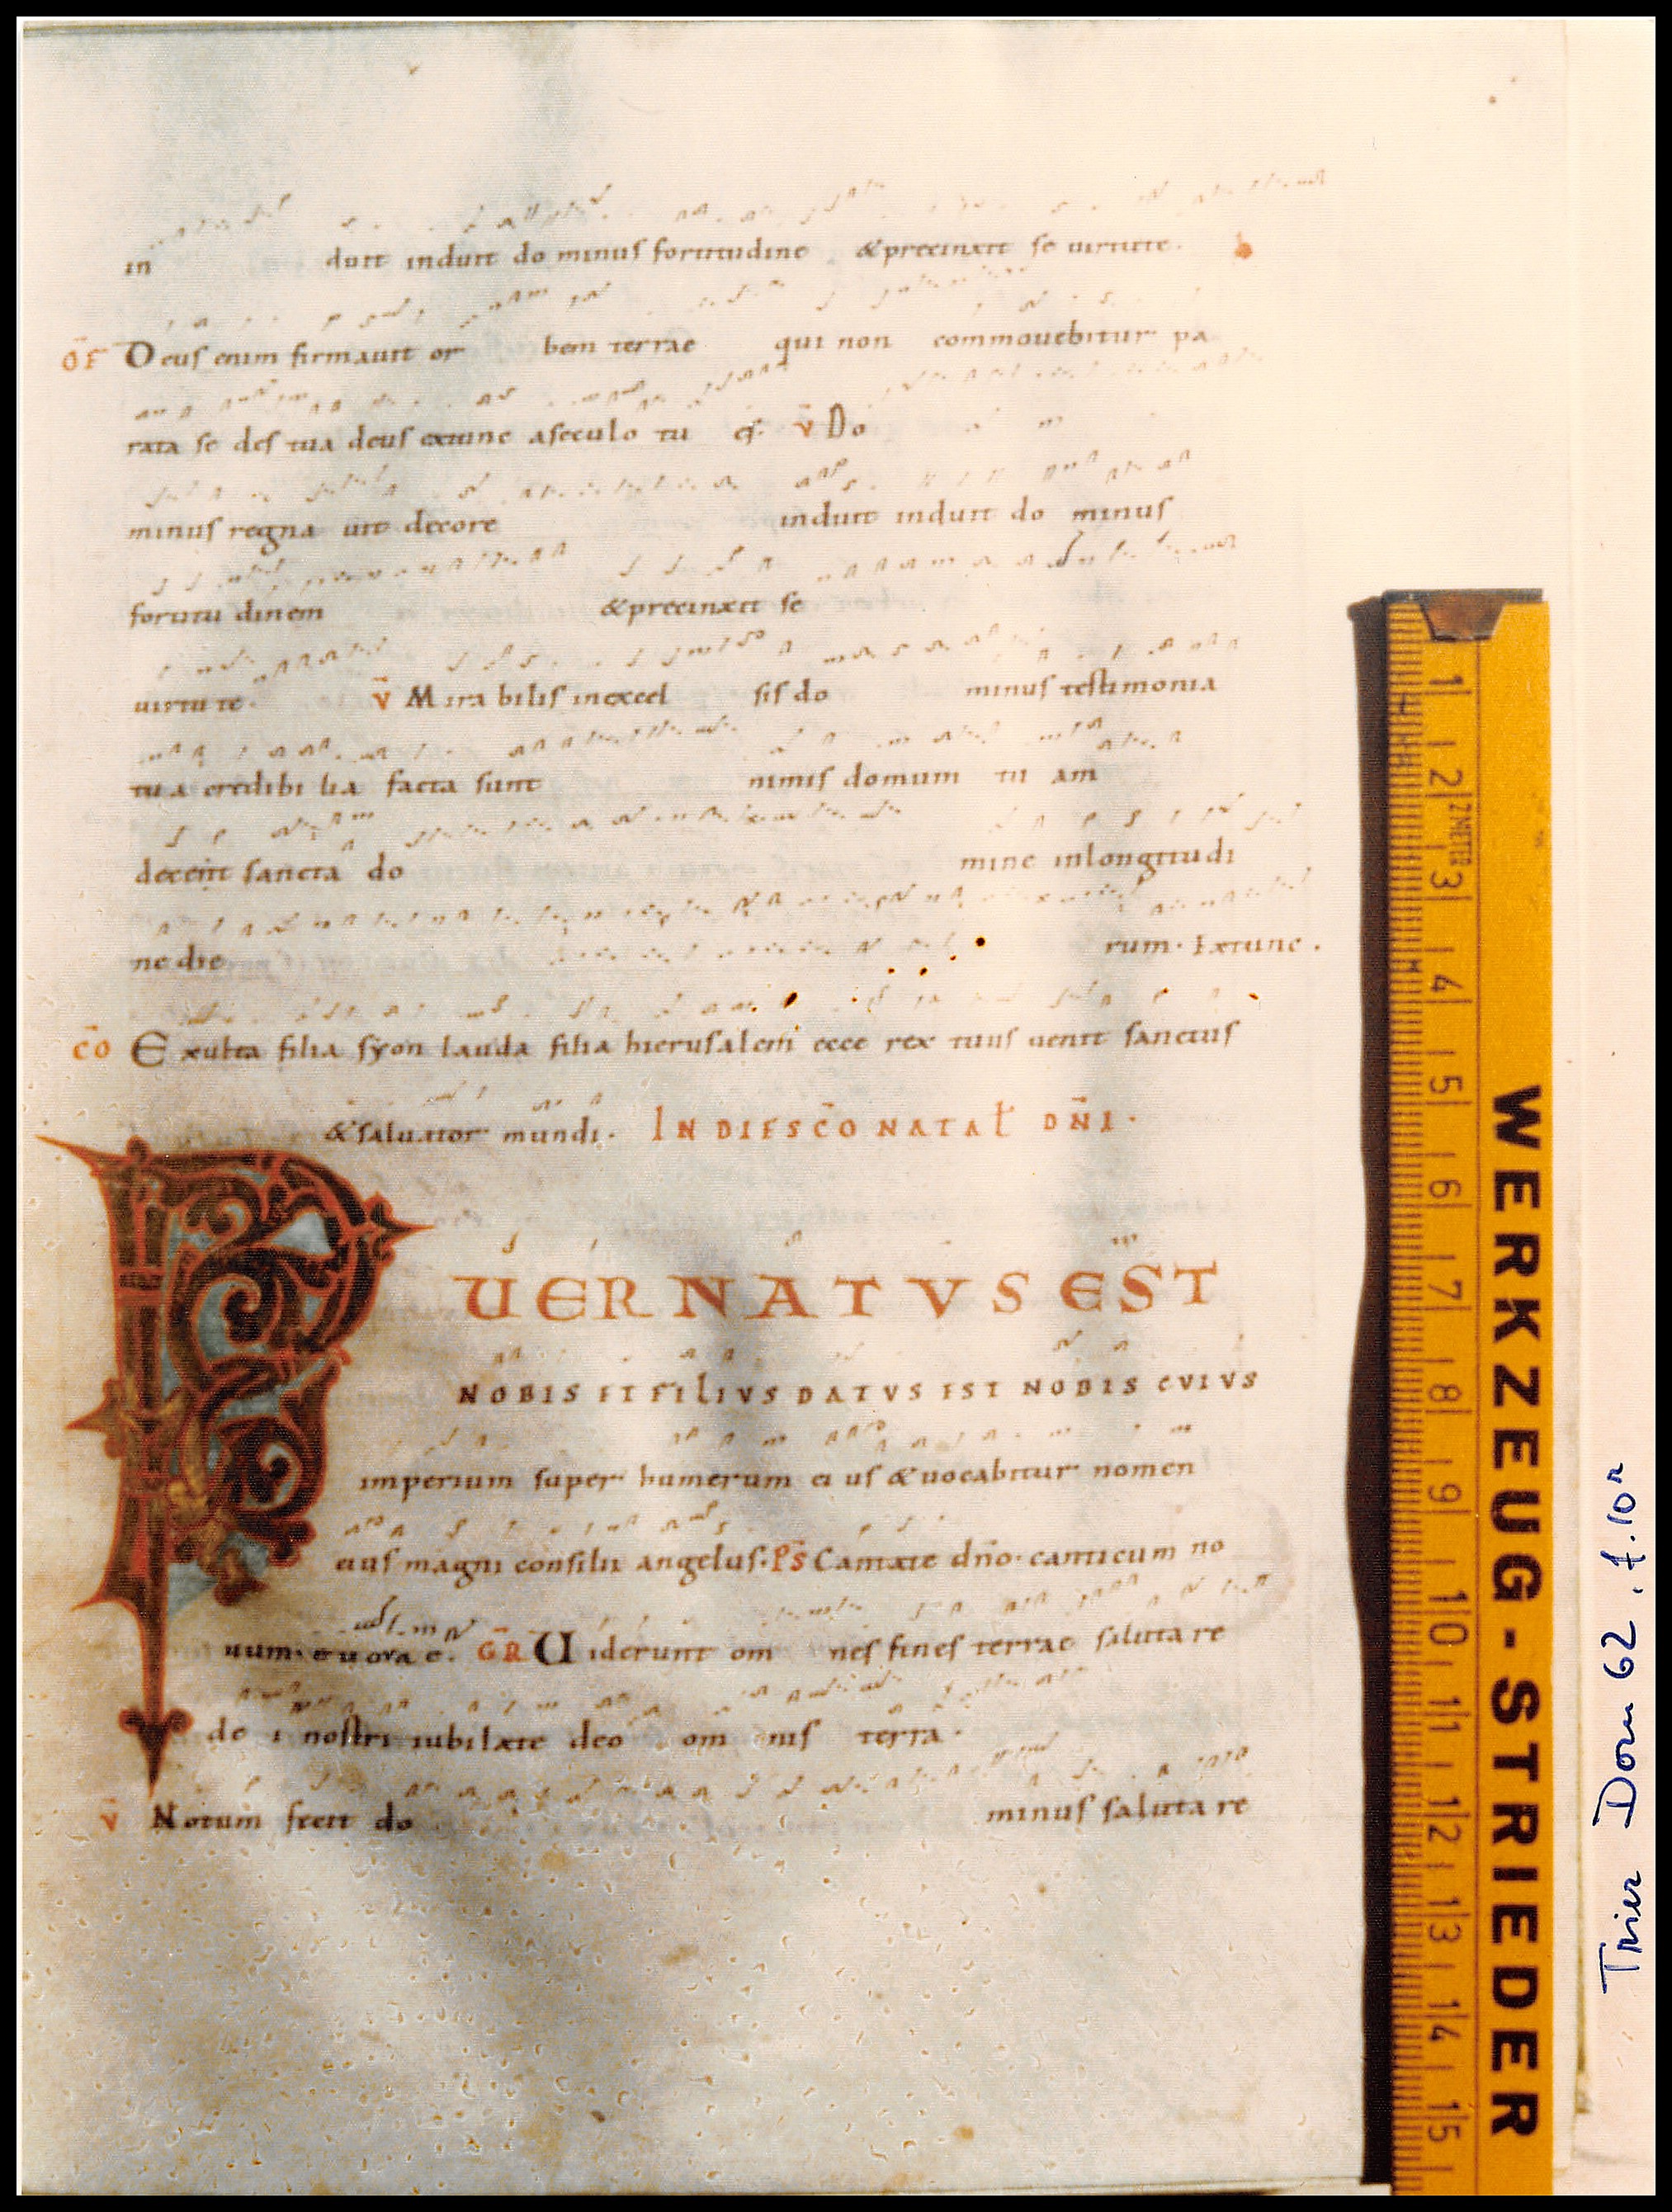 in duit induit do minus fortitudine &precinxit se uirtute.
ŌF Deus enim firmauit or bem terrae qui non commouebitur pa
rata se des tua deus extunc aseculo tu es. v̄ Do
minus regna uit decore induit induit do minus
fortitu dinem &precinxit se
uirtu te. v̄ Mira bilis inexcel sis do minus testimonia
tua credibi lia facta sunt nimis domum tu am
decent sancta do mine inlongitudi
ne die rum. Extunc.
c̄o Exulta filia syon lauda filia hierusalem ecce rex tuus uenit sanctus
&saluator mundi. IN DIE SC̄O NATAŁ DN̄I.
P
UER NATVS EST
NOBIS ET FILIVS DATVS EST NOBIS CVIVS
imperium super humerum ei us &uocabitur nomen
eius magni consilii angelus. PS̄ Cantate dn̄o. canticum no
uum. e u o u a e. ḠR Uiderunt om nes fines terrae saluta re
de i nostri iubilate deo om nis terra.
v̄ Notum fecit do minus saluta re
1 2 3 4 5 6 7 8 9 10 11 12 13 14 15
2 METER
WERKZEUG-STRIEDER
Trier Dom 62, f. 10r